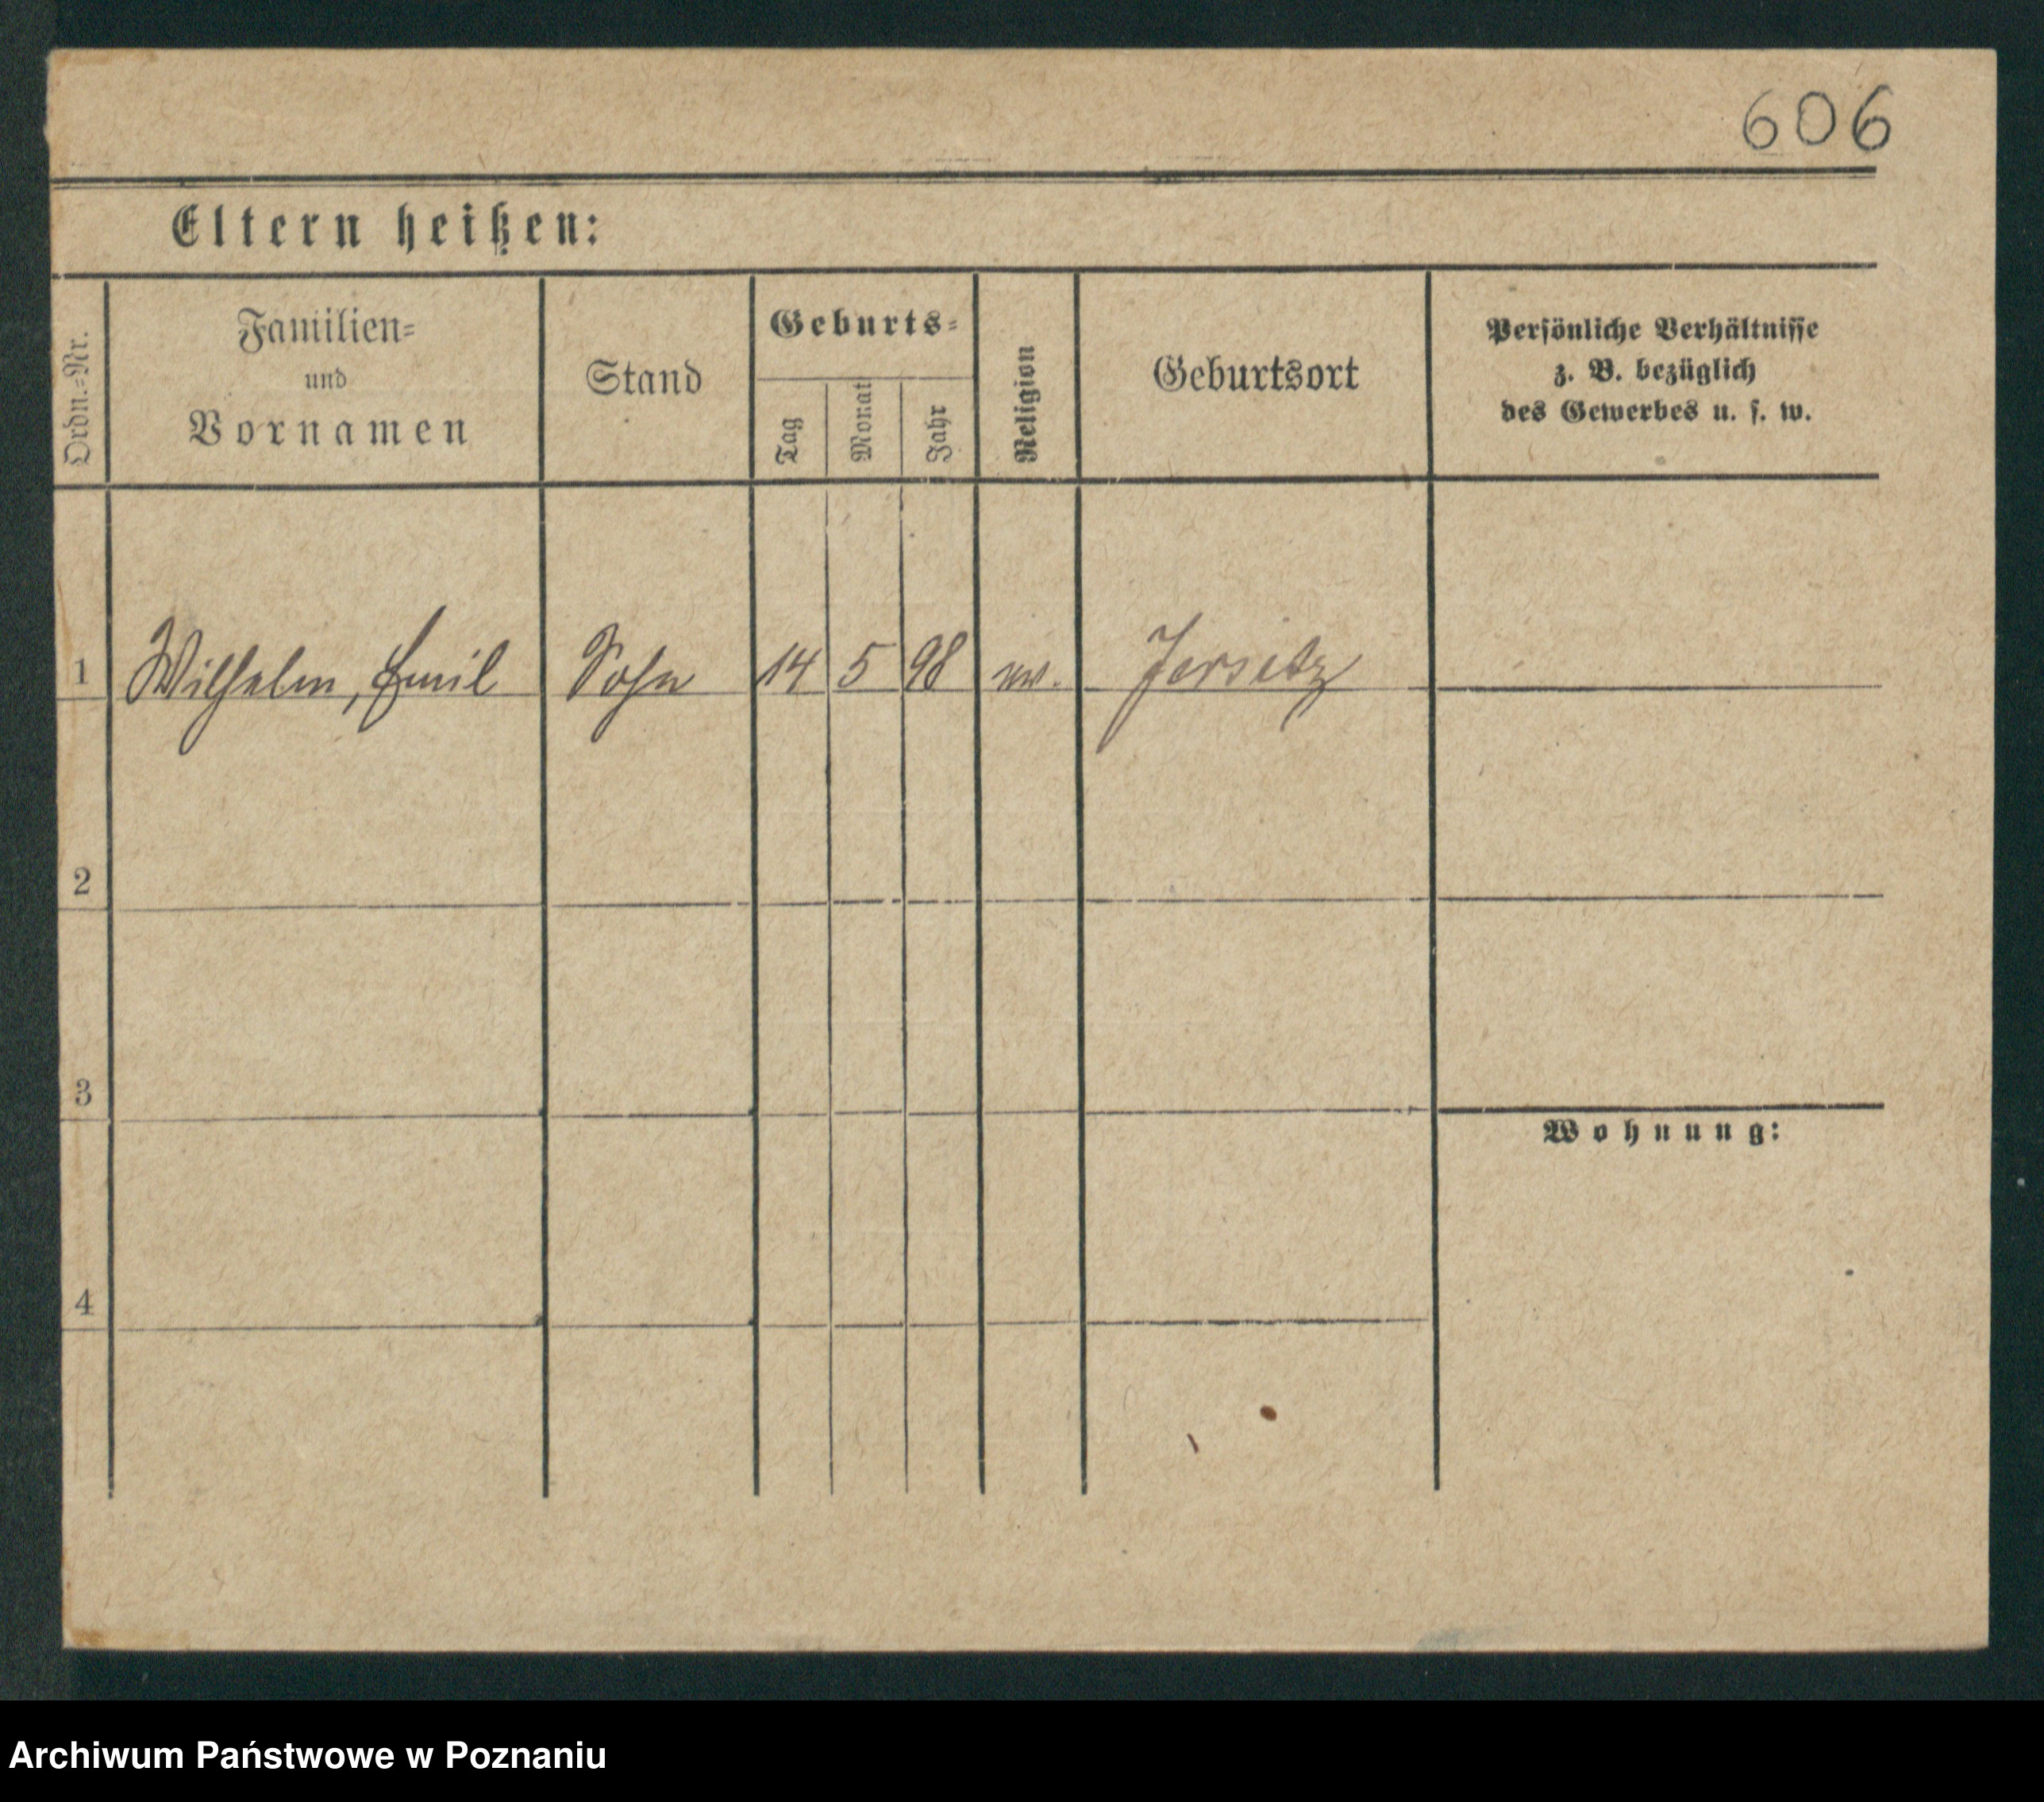 606
Eltern heißen:
Ordn.-Nr.
Familien-
und
Vornamen
Stand
Geburts-
Tag
Monat
Jahr
Religion
Geburtsort
Persönliche Verhältnisse
z. B. bezüglich
des Gewerbes u. s. w.
1 Wilhelm, Emil Sohn 14 5 98 Jersitz
2
3
Wohnung:
4
Archiwum Państwowe w Poznaniu